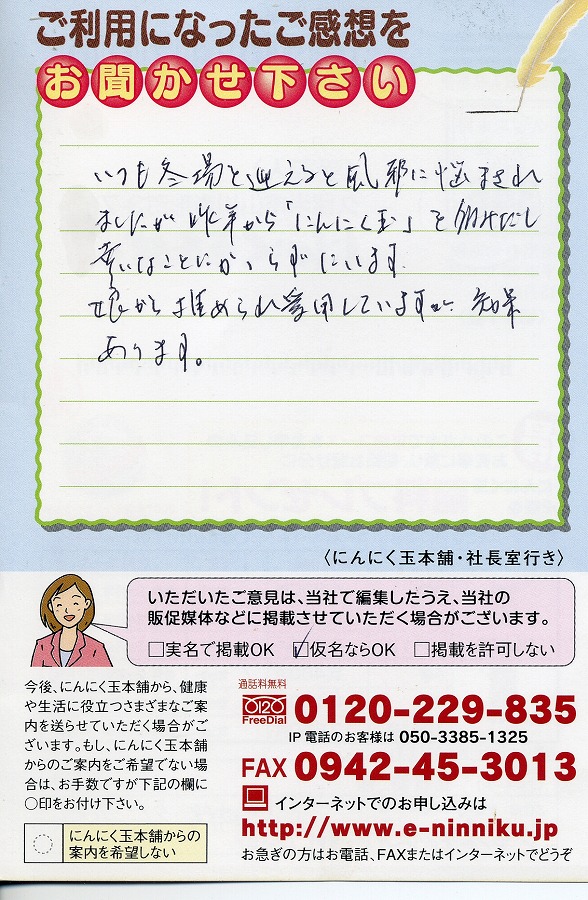 ご利用になったご感想を
お聞かせ下さい
いつも冬場を迎えると風邪に悩まされ
ましたが昨年から「にんにく玉」を飲みだし
幸いなことにかゝらずにいます.
娘から進められ愛用していますが 効果
あります。
〈にんにく玉本舗・社長室行き〉
いただいたご意見は、当社で編集したうえ、当社の
販促媒体などに掲載させていただく場合がございます。
□実名で掲載OK ☑仮名ならOK □掲載を許可しない
今後、にんにく玉本舗から、健康
や生活に役立つさまざまなご案
内を送らせていただく場合がご
ざいます。もし、にんにく玉本舗
からのご案内をご希望でない場
合は、お手数ですが下記の欄に
○印をお付け下さい。
にんにく玉本舗からの
案内を希望しない
通話料無料
FreeDial 0120-229-835
IP電話のお客様は 050-3385-1325
FAX 0942-45-3013
インターネットでのお申し込みは
http://www.e-ninniku.jp
お急ぎの方はお電話、FAXまたはインターネットでどうぞ